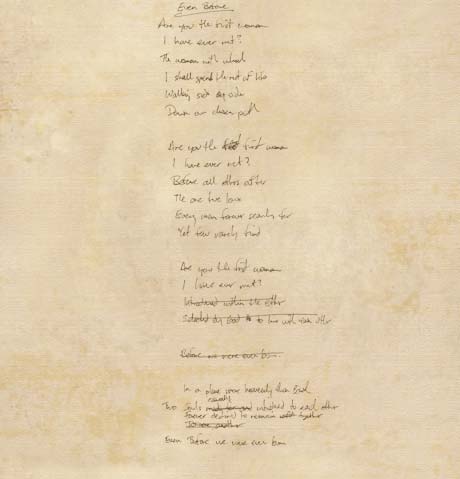 Even Before
Are you the first woman
I have ever met?
The woman with whom
I shall spend the rest of life
Walking side by side
Down our chosen path
Are you the first woman
I have ever met?
Before all others after
The one true love
Every man forever searches for
Yet few rarely find
Are you the first woman
I have ever met?
within the other
to love with each other
Before we were ever born
In a place some heavenly than
Two Souls whisked to each other
forever destined to remain together
Even Before we were ever born